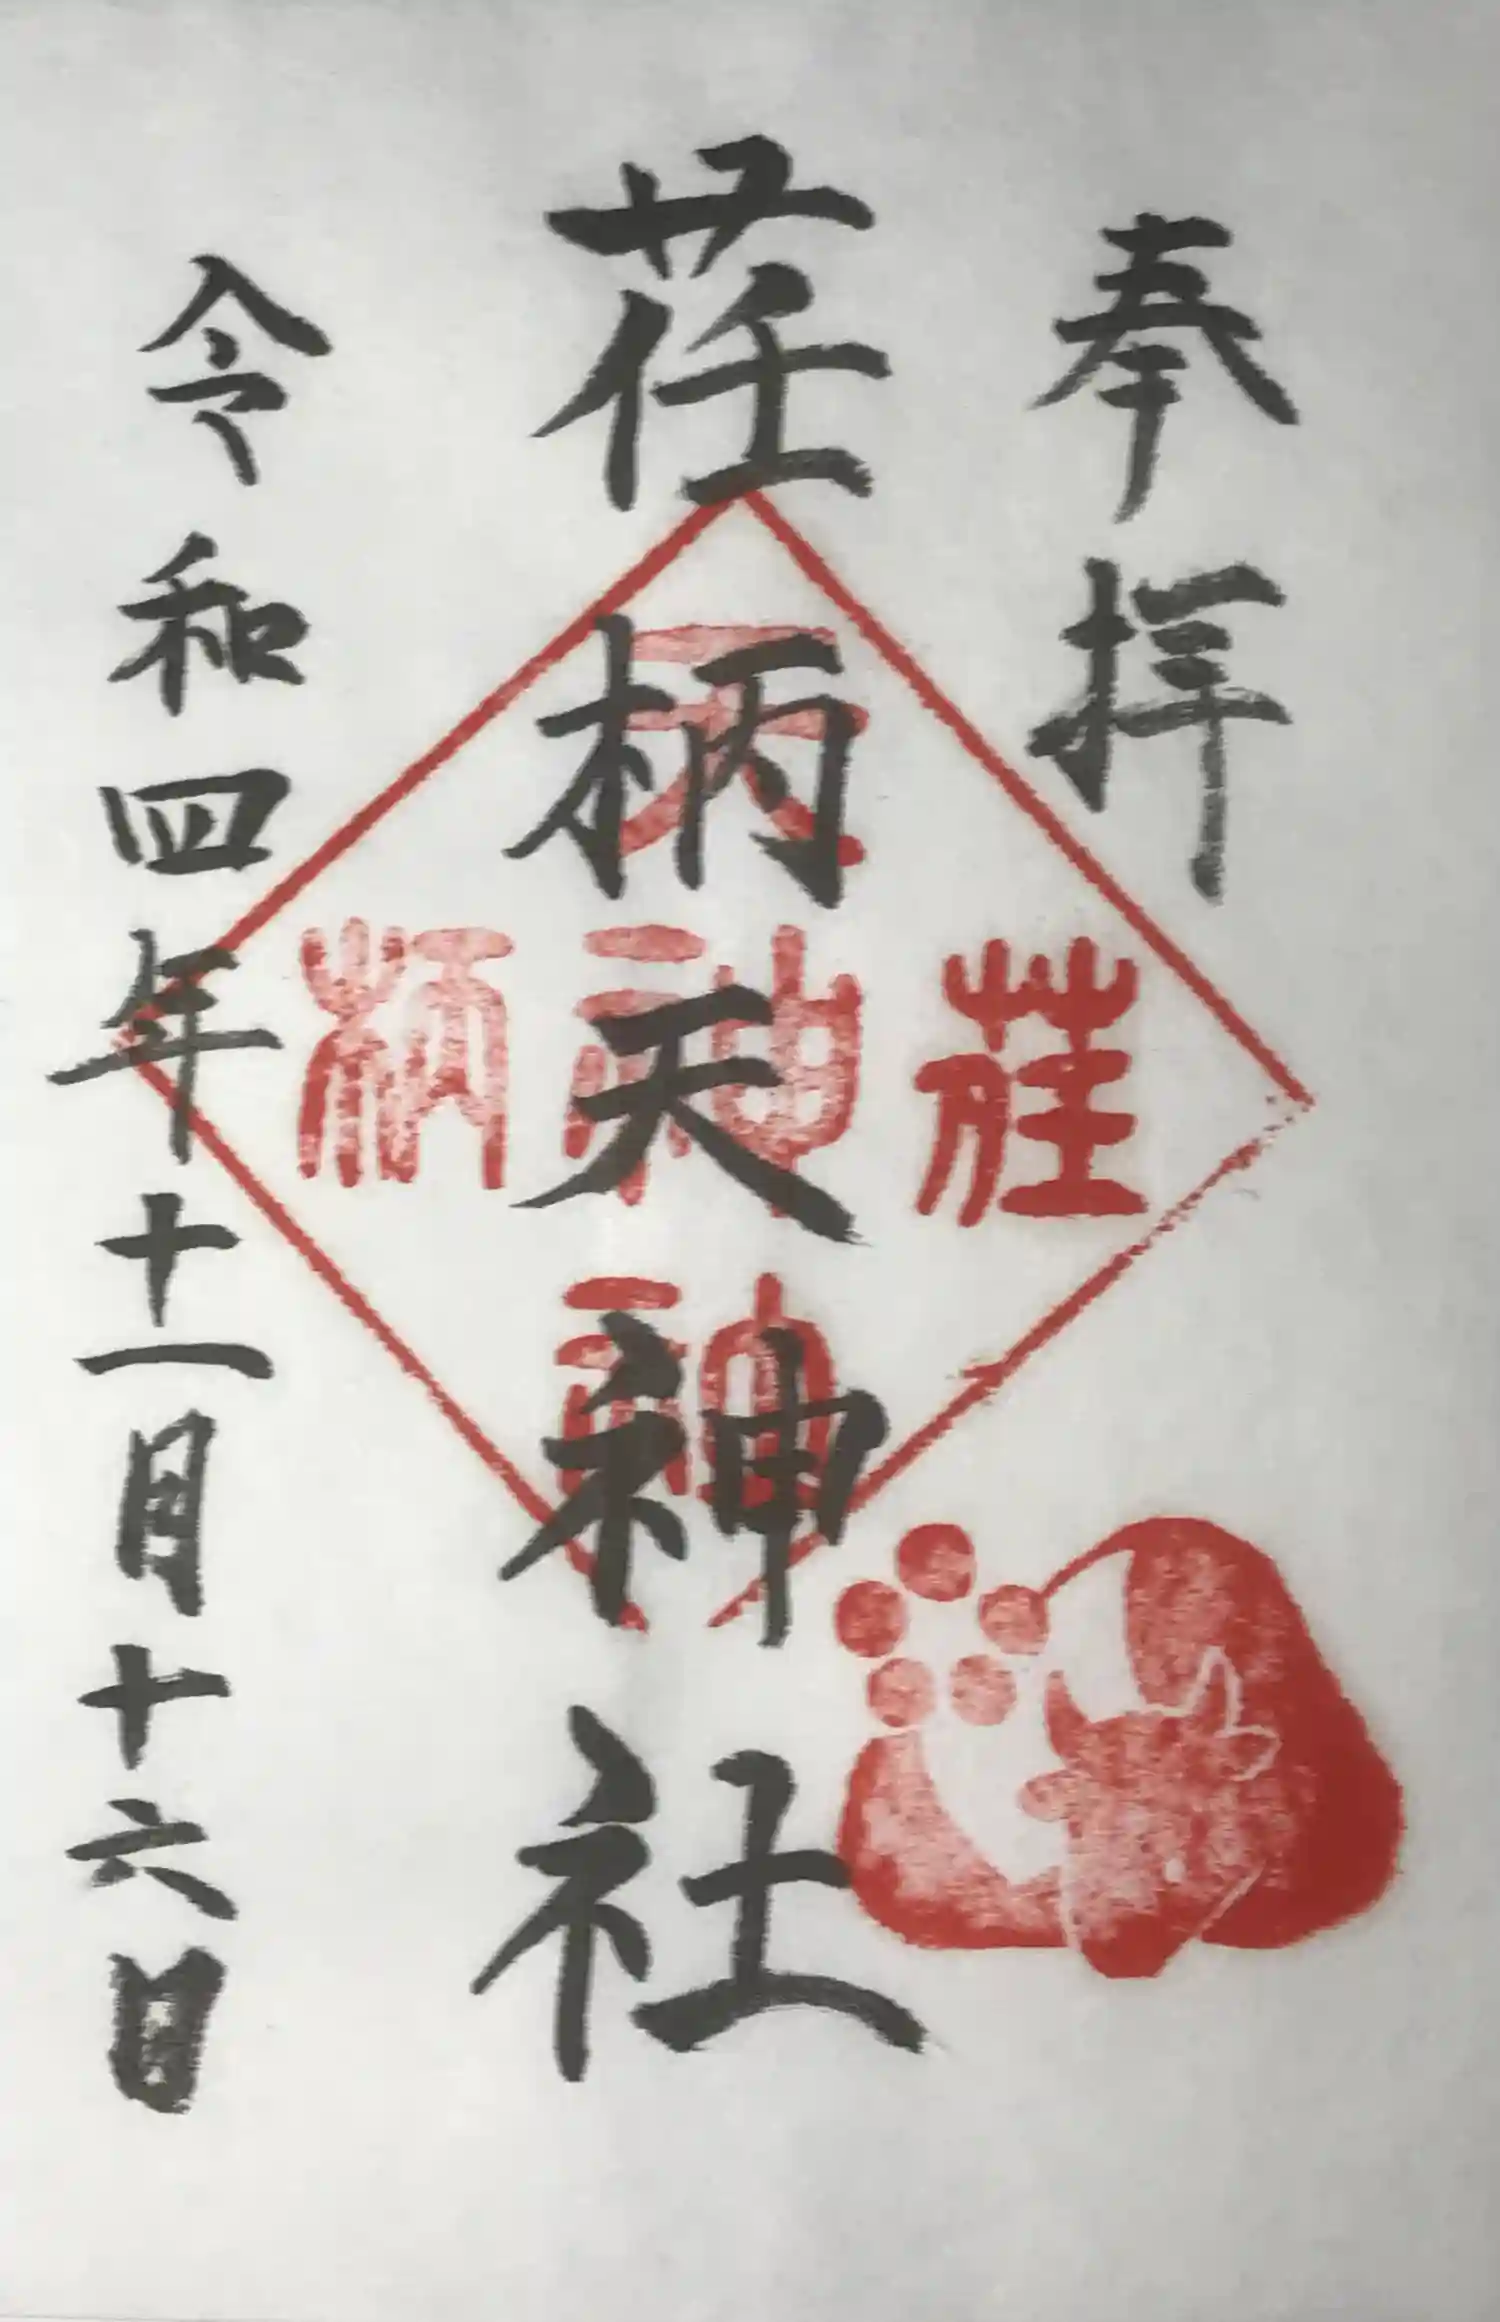 奉拝
荏柄天神社
令和四年十一月十六日
天
荏神柄
神